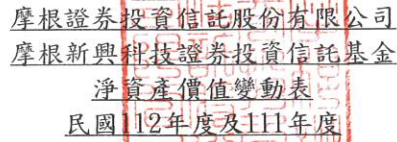 摩根證券投資信託股份有限公司
摩根新興科技證券投資信託基金
淨資產價值變動表
民國112年度及111年度